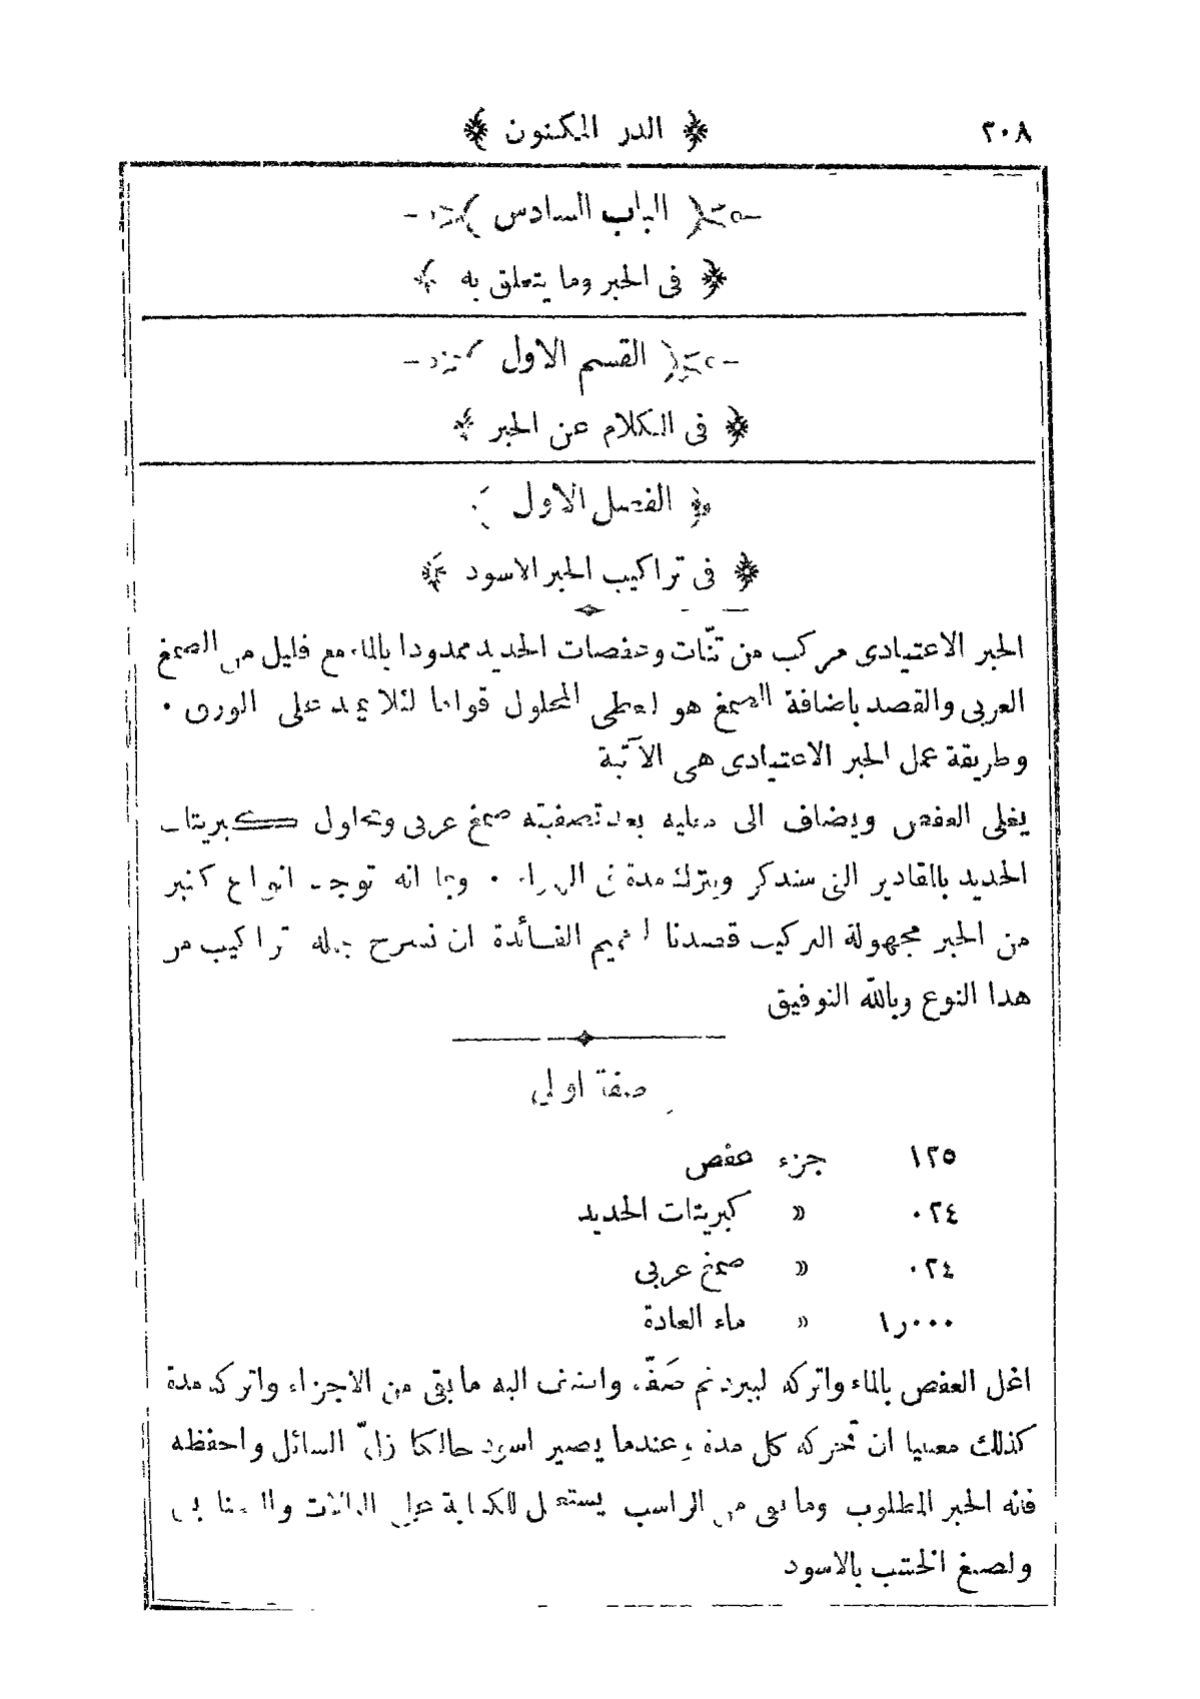 ٢٠٨
﴿ الدر المكنون ﴾
( الباب السادس )
﴿ فى الحبر وما يتعلق به ﴾
( القسم الاول )
﴿ فى الكلام عن الحبر ﴾
﴿ الفصل الاول ﴾
﴿ فى تراكيب الحبر الاسود ﴾
الحبر الاعتيادى مركب من تنّات وعفصات الحديد ممدودا بالماء مع قليل من الصمغ
العربى والقصد باضافة الصمغ هو اعطى المحلول قواما لئلا يمد على الورق ٠
وطريقة عمل الحبر الاعتيادى هى الآتية
يغلى العفص ويضاف الى مغليه بعد تصفيته صمغ عربى ومحلول كبريتات
الحديد بالمقادير التى ستذكر ويترك مدة فى الهواء ٠ وبما انه توجد انواع كثير
من الحبر مجهولة التركيب قصدنا لتميم الفائدة ان نسرح جملة تراكيب من
هذا النوع وبالله التوفيق
صفة اولى
١٢٥ جزء عفص
٠٢٤ » كبريتات الحديد
٠٢٤ » صمغ عربى
١ر٠٠٠ » ماء العادة
اغل العفص بالماء واتركه ليبرد ثم صَفّه واضف اليه ما بقى من الاجزاء واتركه مدة
كذلك معتنيا ان تحركه كل مدة وعندما يصير اسود حالكا زلّ السائل واحفظه
فانه الحبر المطلوب وما بقى من الراسب يستعمل للكتابة على البالات والصناديق
ولصبغ الخشب بالاسود